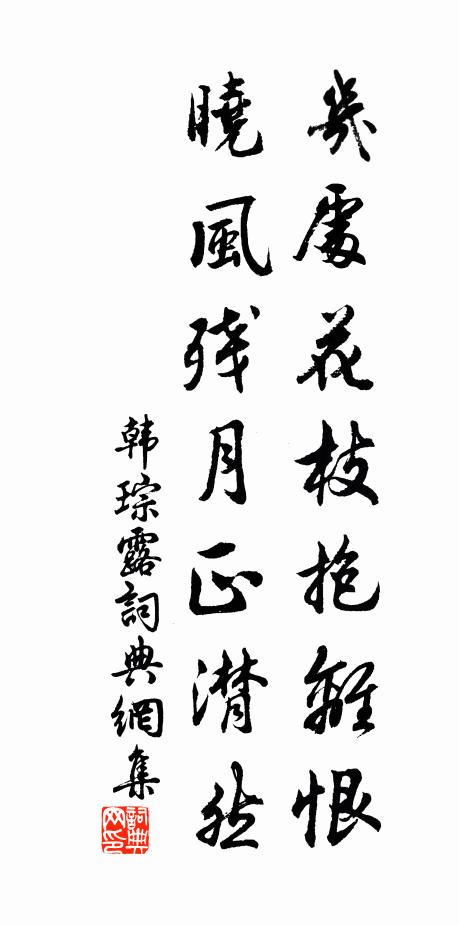 幾處花枝抱離恨
曉風殘月正潸然
韩琮露詞典網集
詞典網印